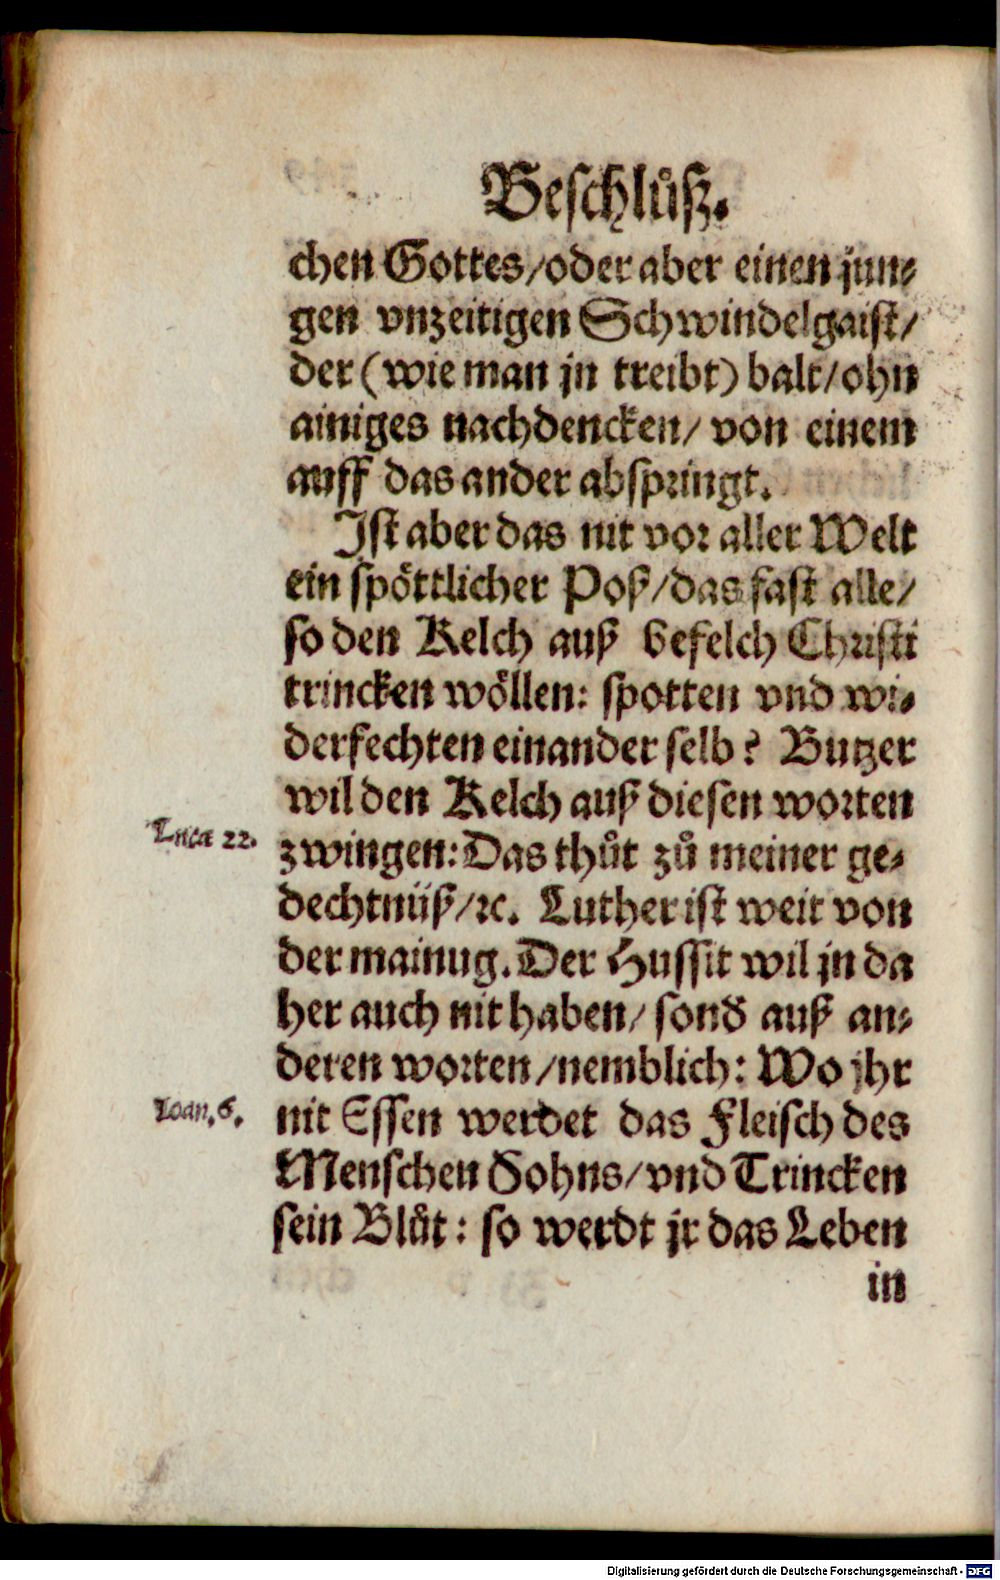 Beschlůß.
chen Gottes/oder aber einen jun⸗
gen vnzeitigen Schwindelgaist/
der (wie man jn treibt) balt/ohn
ainiges nachdencken/ von einem
auff das ander abspringt.
Ist aber das nit vor aller Welt
ein spöttlicher Poß/das fast alle/
so den Kelch auß befelch Christi
trincken wöllen: spotten vnd wi⸗
derfechten einander selb? Butzer
wil den Kelch auß diesen worten
Lucæ 22.
zwingen: Das thůt zů meiner ge⸗
dechtnüß/ꝛc. Luther ist weit von
der mainug. Der Hussit wil jn da
her auch nit haben/ sond̕ auß an⸗
deren worten/nemblich: Wo jhr
Ioan. 6.
nit Essen werdet das Fleisch des
Menschen Sohns/vnd Trincken
sein Blůt: so werdt jr das Leben
in
Digitalisierung gefördert durch die Deutsche Forschungsgemeinschaft - DFG